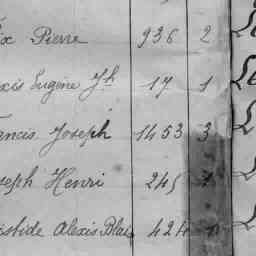 ix Pierre 936 2
exis Eugène Jh 17 1
rancis Joseph 1453 3
seph Henri 245 1
istide Alexis Blai 424